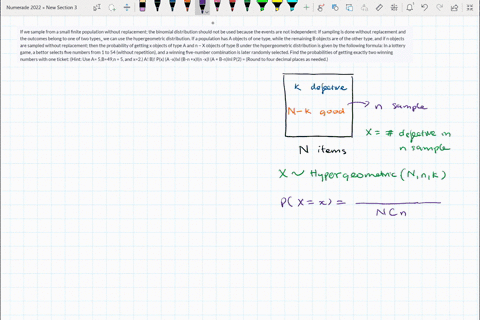 Numerade 2022 > New Section 3
If we sample from a small finite population without replacement, the binomial distribution should not be used because the events are not independent. If sampling is done without replacement and
the outcomes belong to one of two types, we can use the hypergeometric distribution. If a population has A objects of one type, while the remaining B objects are of the other type, and if n objects
are sampled without replacement, then the probability of getting x objects of type A and n - X objects of type B under the hypergeometric distribution is given by the following formula: In a lottery
game, a bettor selects five numbers from 1 to 54 (without repetition), and a winning five-number combination is later randomly selected. Find the probabilities of getting exactly two winning
numbers with one ticket. (Hint: Use A= 5,B=49,n = 5, and x=2.) A! B)! P(x) (A -x)!x! (B-n +x)!(n -x)! (A + B-n)!n! P(2) = (Round to four decimal places as needed.)
k defective
N-k good
n sample
X = # defective in
n sample
N items
X ~ Hypergeometric (N, n, k)
P( X = x) =
N C n